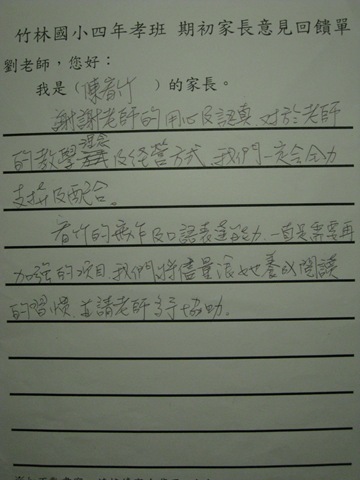 竹林國小四年孝班 期初家長意見回饋單
劉老師，您好：
我是（陳育竹）的家長。
謝謝老師的用心及認真,對於老師
的教學理念及經營方式,我們一定會全力
支持及配合。
育竹的寫作及口語表達能力一直是需要再
加強的項目,我們將儘量讓她養成閱讀
的習慣,並請老師多予協助。